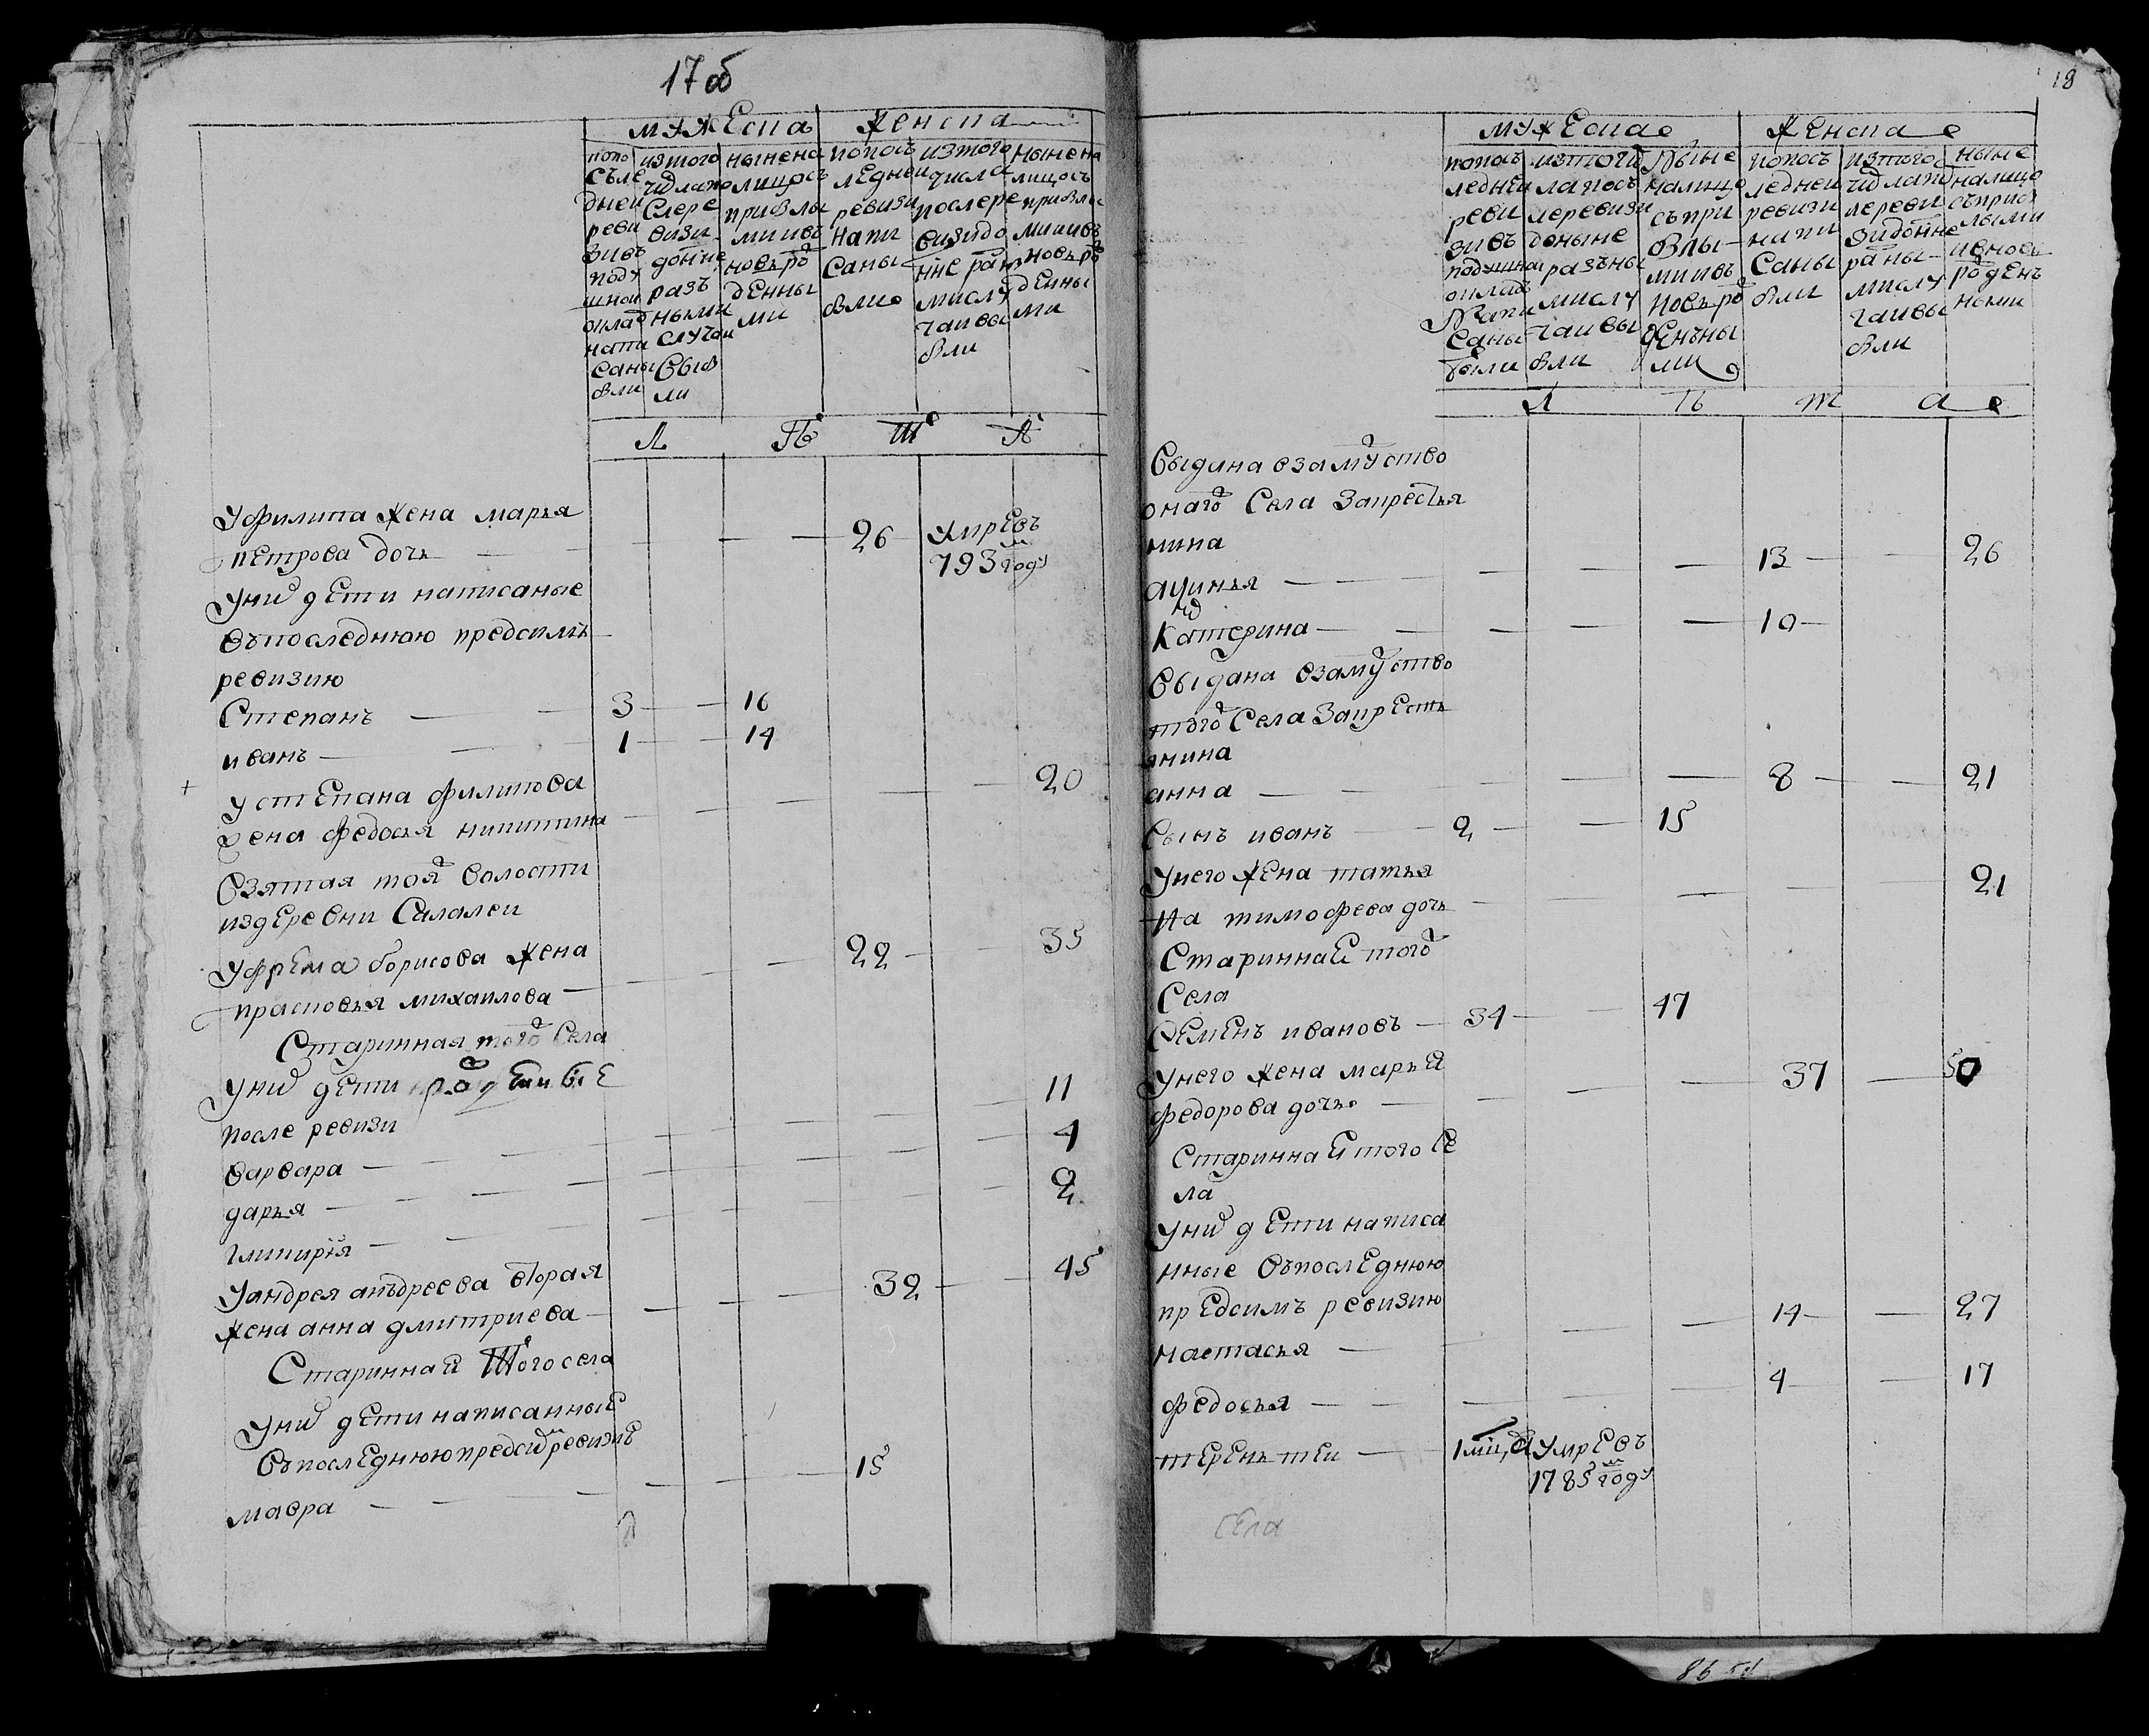 17 об
мужеска женска
попо
сле
дней
реви
зи въ
поду
шной
оклад
напи
саны
бли
изтого
числапо
сле ре
визи
до нне
разъ
ными
случаи
выб
ли
ныне на
лицосъ
прибылы
ми ивъ
новь ро
денны
ми
попосъ
ледней
ревизи
напи
саны
бли
изтого
числа
после ре
визидо
нне раз
мислу
чаивы
бли
ныне на
лицосъ
прибылы
ми ивъ
новь ро
денны
ми
Л Ѣ Т А
У филипа жена марья
петрова дочь 26 умре въ
793 м году
У них дети написаные
въпоследнюю предсимъ
ревизию
Степанъ 3 16
иванъ 1 14
+ у степана филипова 20
жена федосья никитина
Взятая той волости
издеревни Салалеи
У фрема борисова жена 22 35
прасковья михаилова
Старинная того Села
Уних дети роденные
после ревизи 11
варвара 4
дарья 2
гликирия
У андрея анъдреева вторая 32 45
жена анна дмитриева
Старинная Того села
Уних дети написанные
Въпоследнююпредсим ревизию
мавра 15
18
мужеска женска
попосъ
ледней
реви
зи въ
подушной
оклад
напи
саны
были
изтого чи
лапосъ
леревизи
доныне
разъны
мислу
чаивы
бли
Ныне
налицо
съпри
былы
ми ивъ
новь ро
денъны
ми
попосъ
ледней
ревизи
напи
саны
бли
изтого
числапо
слереви
зидонне
разны
мислу
чаивы
бли
ныне
налицо
съприб
лыми
ивнов
роденъ
ными
Л Ѣ т а
выдина взамуство
онаго Села Закресть
нина
акинья 13 26
Катерина 10
выдана взамуство
того Села Закресть
янина
анна 8 21
Сынъ иванъ 2 15
У него жена татья
на тимофеева дочь 21
Старинная того
Села
Семенъ ивановъ 34 47
У него жена марья 37 50
федорова дочь
Старинная того Се
ла
уних дети написа
нные въпоследнюю
предсимъ ревизию
настасья 14 27
федосья 4 17
терентеи умре въ
1785 м году
Села